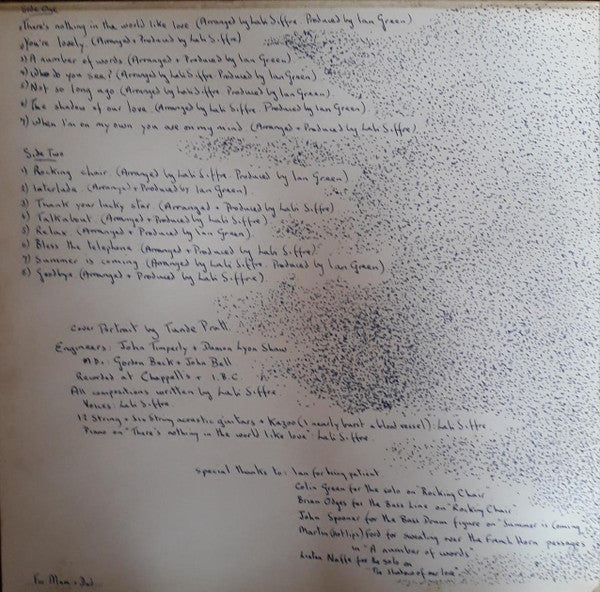 Side One
1) There's nothing in the world like love (Arranged by Labi Siffre Produced by Ian Green)
2) You're lovely (Arranged + Produced by Labi Siffre)
3) A number of words (Arranged + Produced by Ian Green)
4) Who do you see? (Arranged by Labi Siffre Produced by Ian Green)
5) Not so long ago (Arranged by Labi Siffre. Produced by Ian Green)
6) The shadow of our love (Arranged by Labi Siffre. Produced by Ian Green)
7) When I'm on my own you are on my mind (Arranged + Produced by Labi Siffre)
Side Two
1) Rocking chair (Arranged by Labi Siffre Produced by Ian Green)
2) Interlude (Arranged + Produced by Ian Green)
3) Thank your lucky star (Arranged + Produced by Labi Siffre)
4) Talkabout (Arranged + Produced by Labi Siffre)
5) Relax (Arranged + Produced by Ian Green)
6) Bless the telephone (Arranged + Produced by Labi Siffre)
7) Summer is coming (Arranged by Labi Siffre. Produced by Ian Green)
8) Goodbye (Arranged + Produced by Labi Siffre)
Cover Portrait by Tande Pratt
Engineers: John Timperly + Damon Lyon Shaw
M.D.: Gordon Beck + John Bell
Recorded at Chappells + I.B.C.
All compositions written by Labi Siffre
Voices: Labi Siffre
12 String + six String acoustic guitars + Kazoo (I nearly burst a blood vessel). Labi Siffre
Piano on "There's nothing in the world like love" Labi Siffre.
Special thanks to: Ian for being patient
Colin Green for the solo on "Rocking Chair"
Brian Odges for the Bass Line on "Rocking Chair"
John Spooner for the Bass Drum figure on "Summer is Coming"
Martin (hot lips) Ford for sweating over the French Horn passages
in "A number of words"
for the solo on
"The shadow of our love".
For Mum + Dad